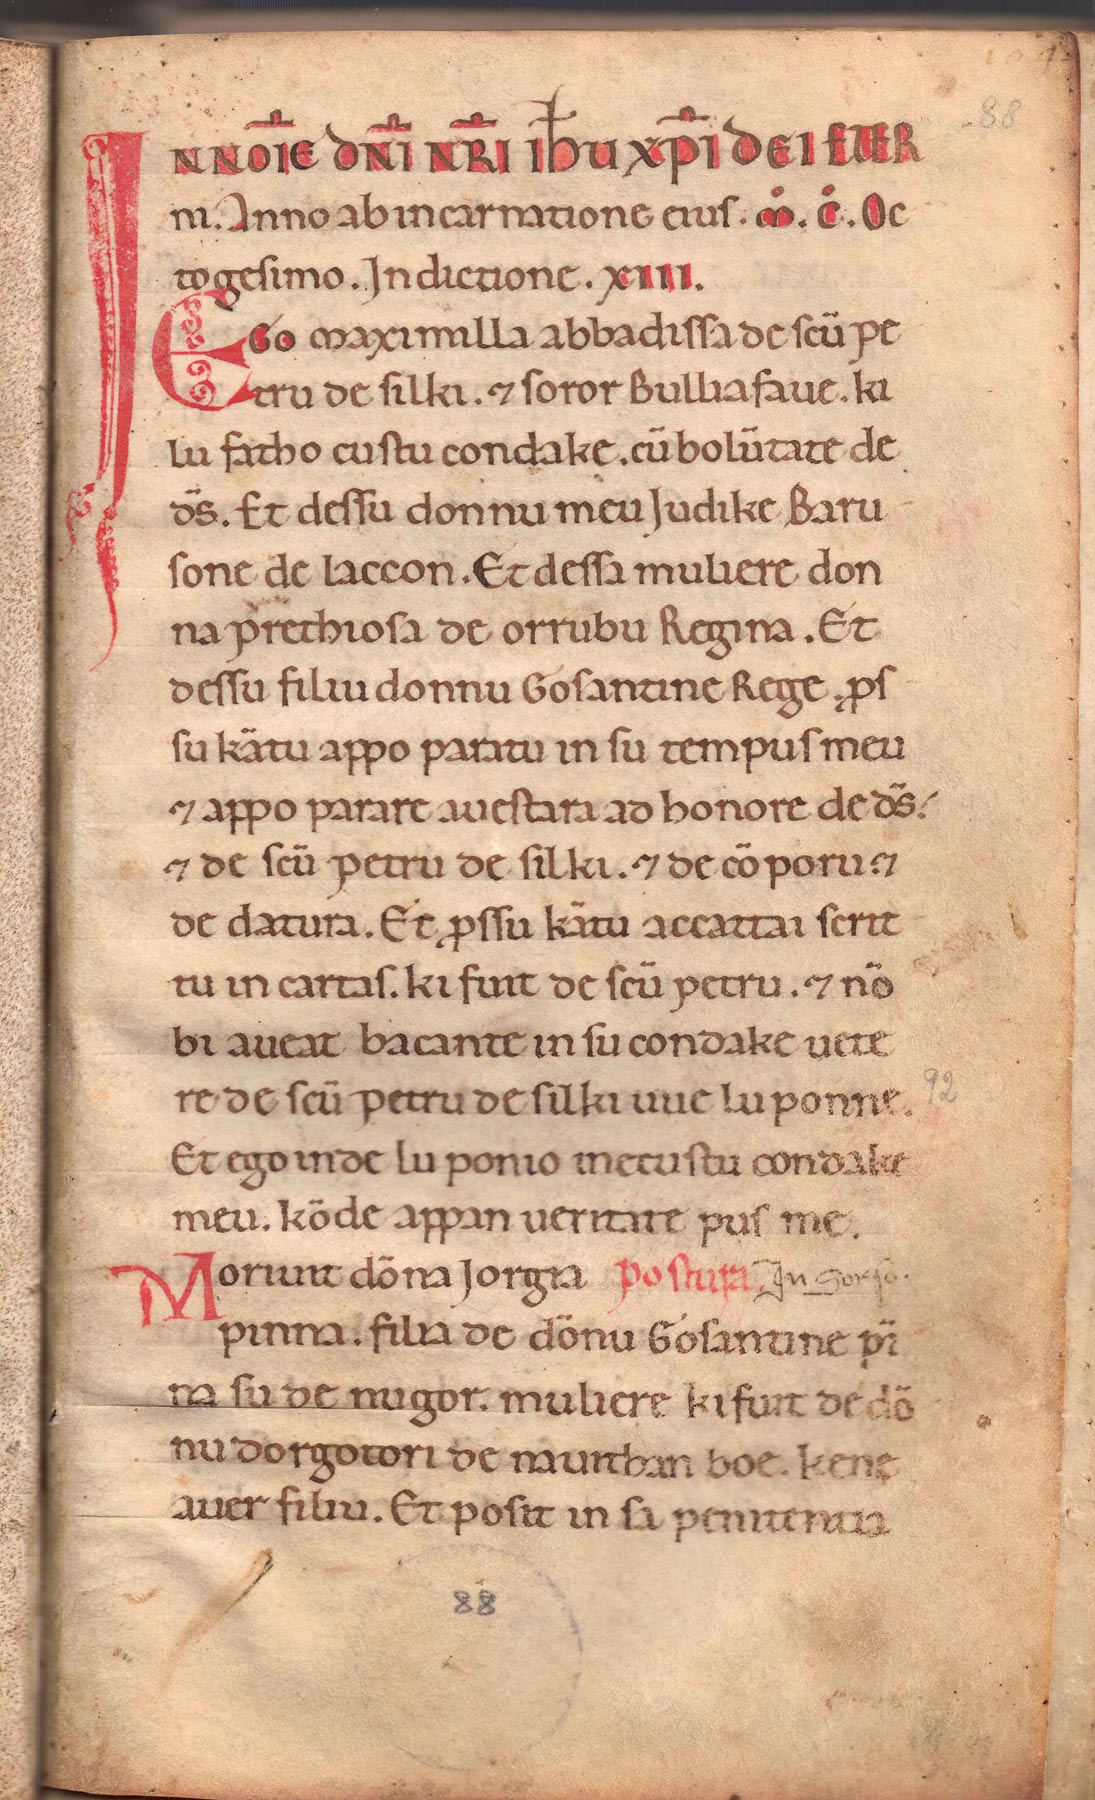 88
IN NOĪE DN̄I NR̄I IH̄U XP̄I DEI ETER
ni. Anno ab incarnatione eius. m̊. c̊. Oc
togesimo. Indictione. XIII.
EGo Maximilla abbadissa de scū pe
tru de silki. ⁊ soror Bulliafaue. ki
lu fatho custu condake. cū bolūtate de
d̄s. Et dessu donnu meu Judike Baru
sone de laccon. Et dessa muliere don
na prethiosa de orrubu Regina. Et
dessu filiu donnu Gosantine Rege. ꝓs
su kātu appo paratu in su tempus meu
⁊ appo parare auestara ad honore de d̄s.
⁊ de scū petru de silki. ⁊ de cōporu ⁊
de datura. Et ꝓssu kātu accattai scrit
tu in cartas. ki furt de scū petru. ⁊ nō
bi aueat bacante in su condake uete
re de scū petru de silki uue lu ponne.
92
Et ego inde lu ponio inecustu condake
meu. kōde appan ueritate pus me.
Moriunt dōna Jorgia postura In Sorso.
pinna. filia de dōnu Gosantine pī
na su de nugor. muliere ki furt de dō
nu dorgotori de nauithan boe. kene
auer filiu. Et posit in sa penitentia
88